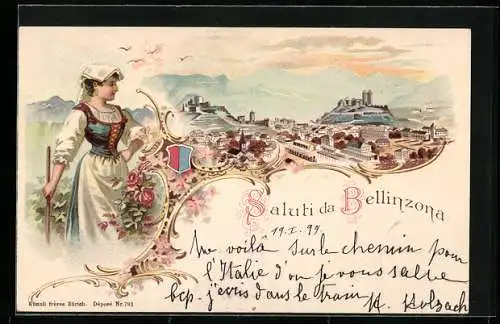 Saluti da Bellinzona
19.I.99
Me voilà sur le chemin pour
l'Italie d'ou je vous salue
bcp. j'ecris dans le train
Künzli frères Zürich. Déposé Nr. 791